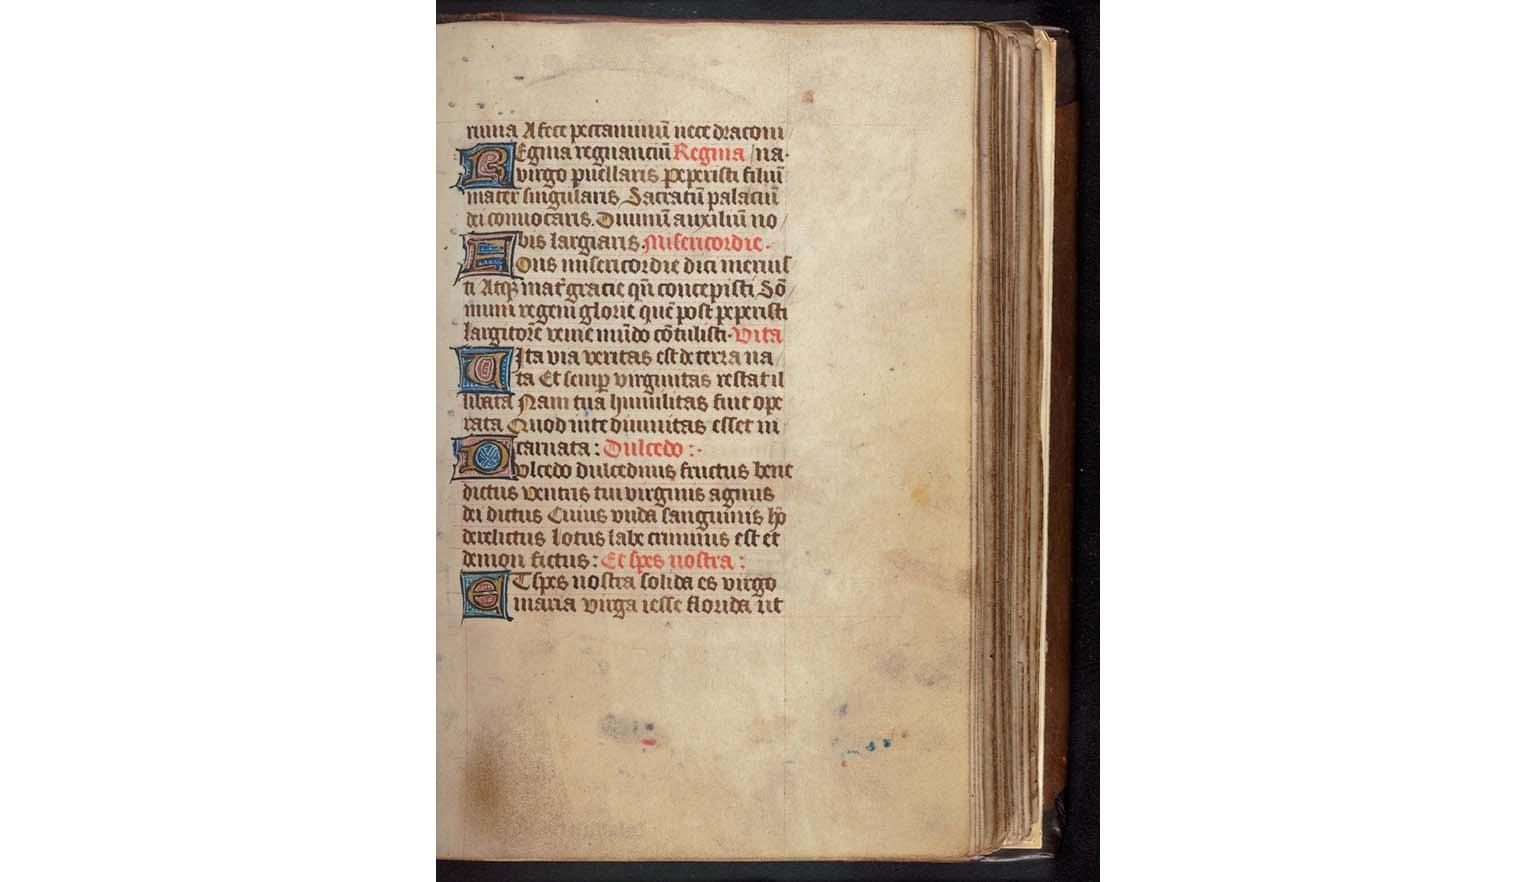 ruina A fece peccaminū nece draconi
REgina regnanciū Regina na
virgo puellaris peperisti filiū
mater singularis Sacratū palaciū
dei conuocaris Diuinū auxiliū no
bis largiaris Misericordie
Fons misericordie dici meruis
ti Atqꝫ mat̄ gracie qn̄ concepisti Sō
mum regem glorie quē post peperisti
largitorē venie mūdo cōtulisti Vita
VIta via veritas est de terra na
ta Et semꝑ virginitas restat il
libata Nam tua humilitas fuit ope
rata Quod in te diuinitas esset in
carnata : Dulcedo :
Dulcedo dulcedinis fructus bene
dictus ventris tui virginis agnus
dei dictus Cuius vnda sanguinis ho
derelictus lotus labe criminis est et
demon fictus : Et spes nostra :
ET spes nostra solida es virgo
maria virga iesse florida ut